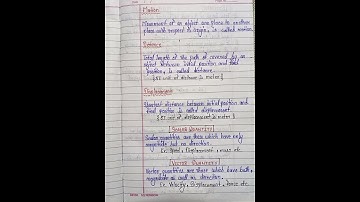 Motion
Movement of an object one place to another
place with respect to origin, is called motion.
Distance
Total length of the path covered by an
object between initial position and final
position, is called distance.
{SI unit of distance is meter}
Displacement
Shortest distance between initial position and
final position is called displacement.
{SI unit of displacement is meter}
[SCALAR QUANTITY]
Scalar quantities are those which have only
magnitude but no direction.
Ex. Speed, Displacement, mass etc.
[VECTOR QUANTITY]
Vector quantities are those which have both
magnitude as well as direction.
Ex. Velocity, Displacement, force etc.